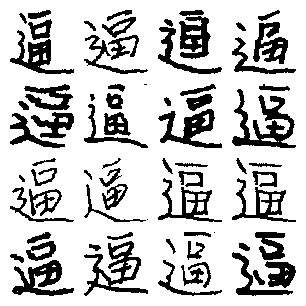 逼逼逼逼
逼逼逼逼
逼逼逼逼
逼逼逼逼